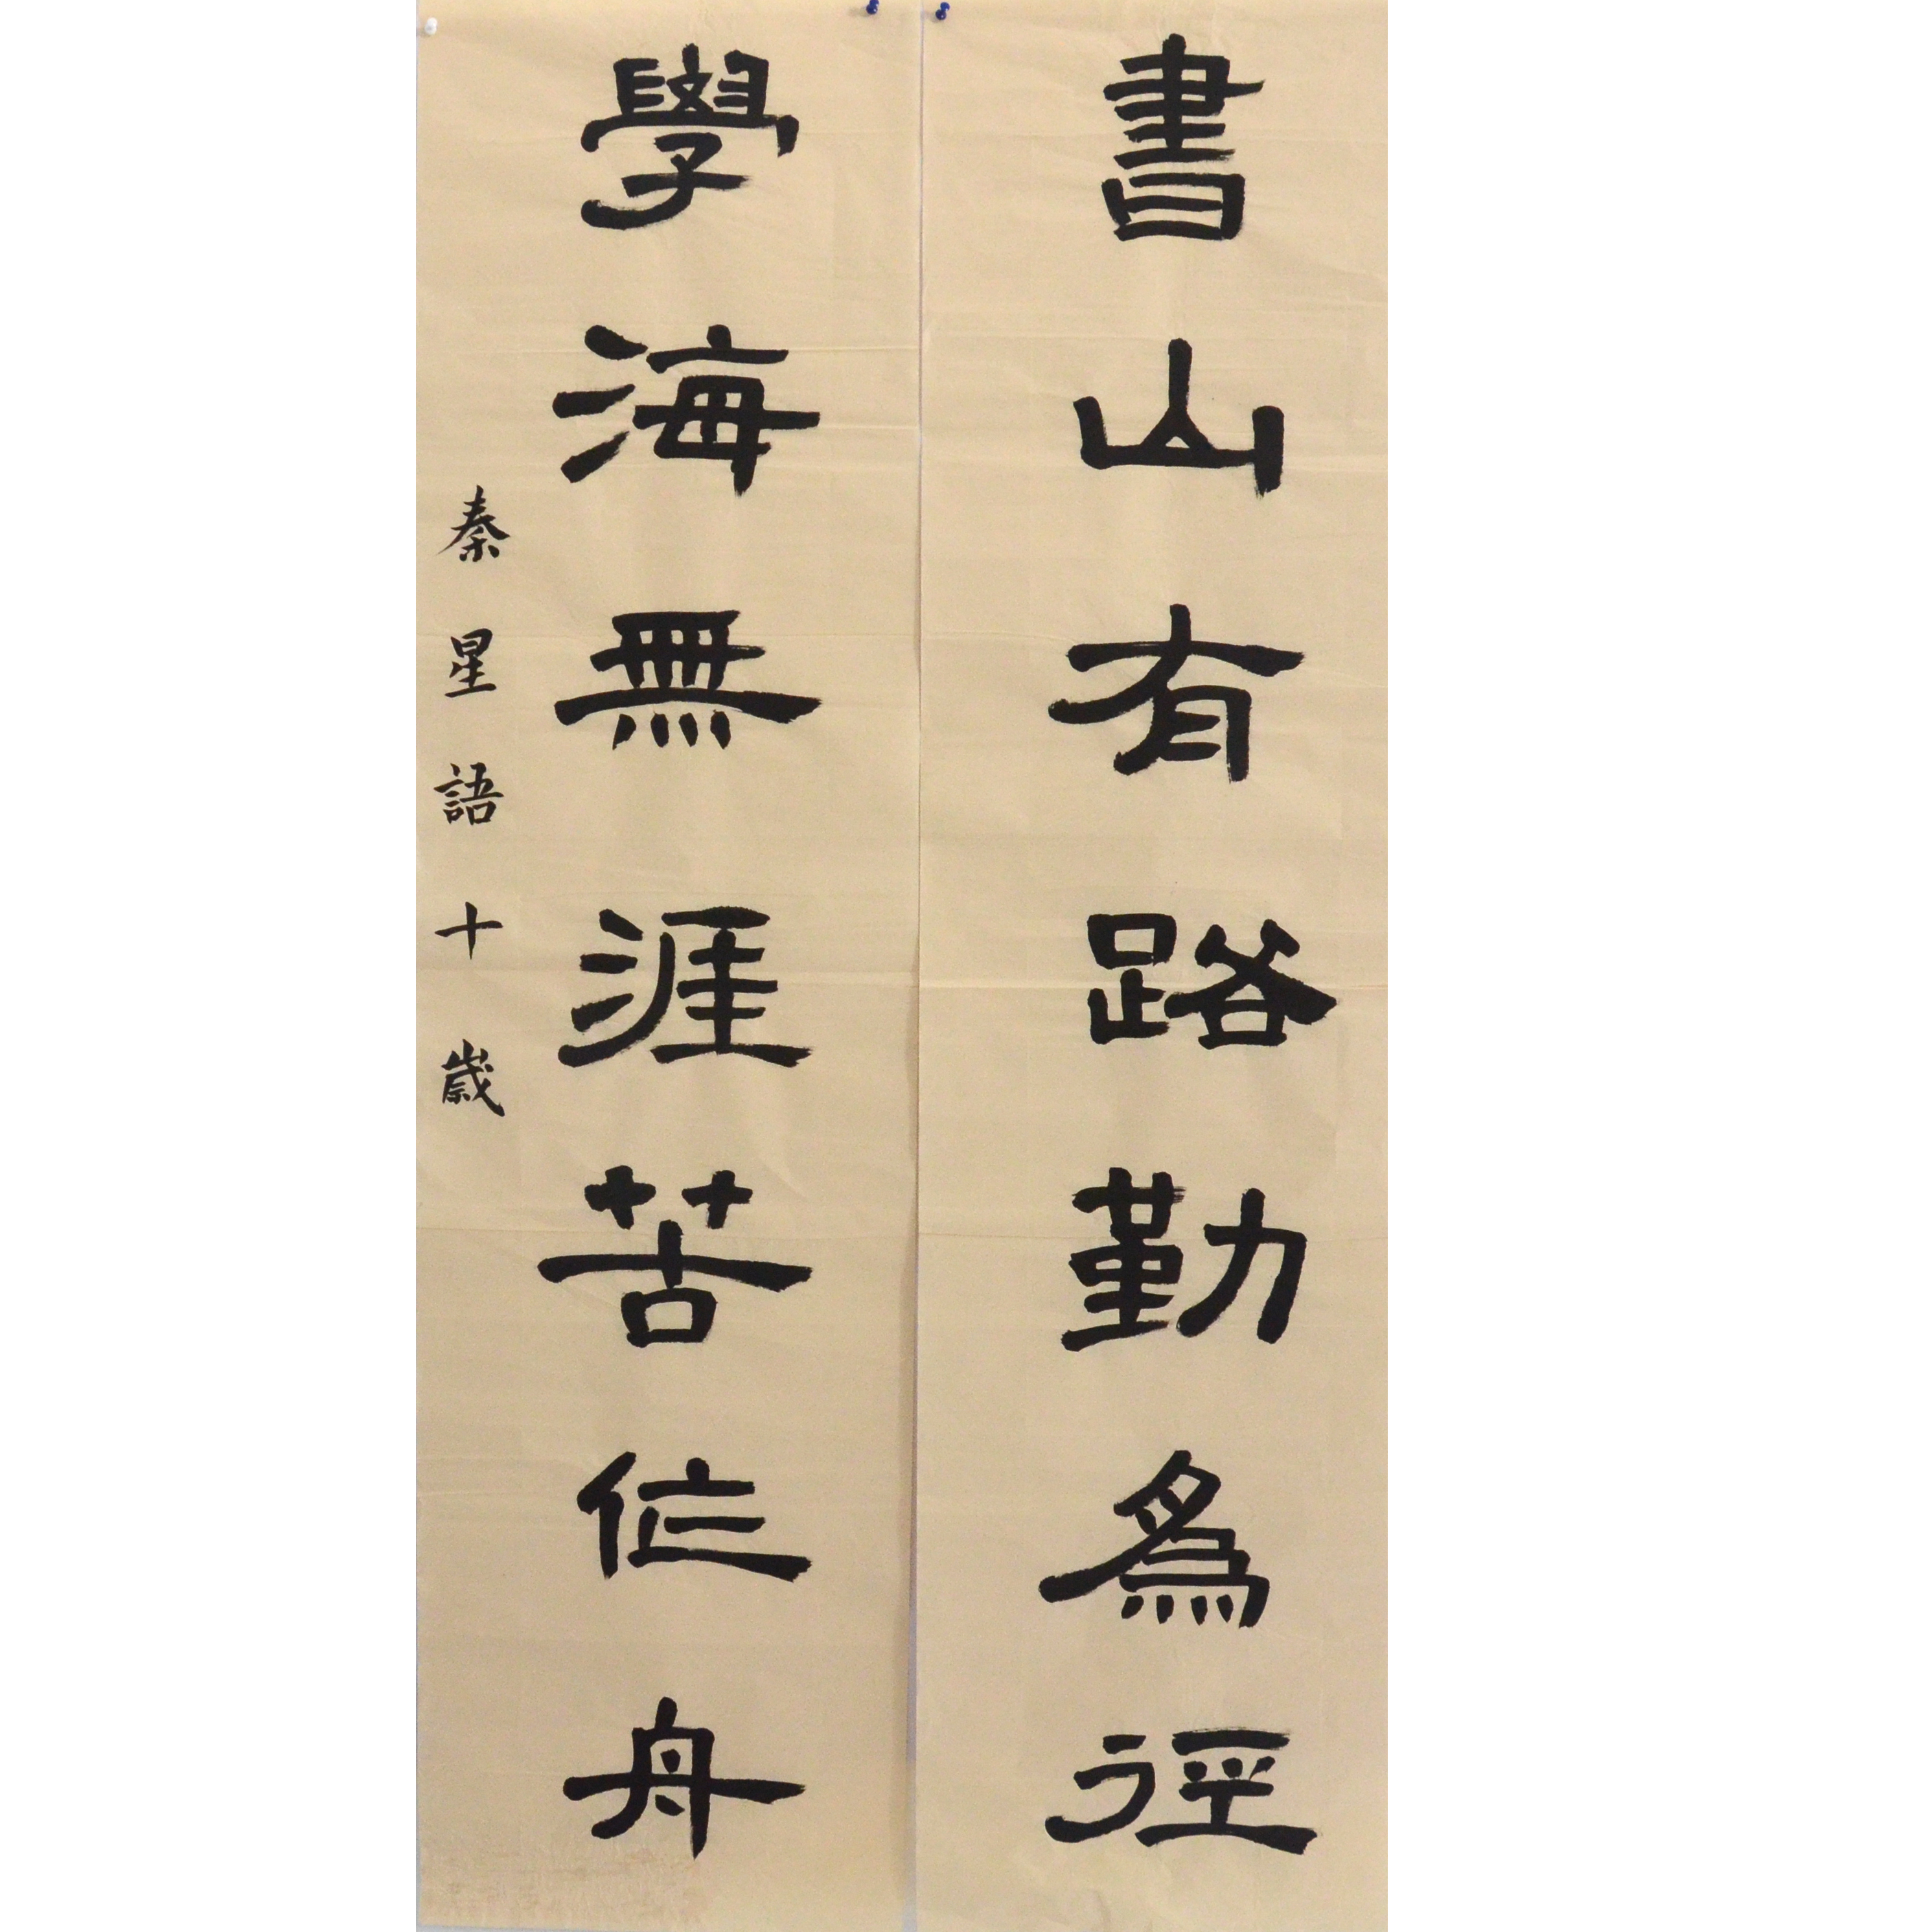 書山有路勤為徑
學海無涯苦作舟
秦星語十歲